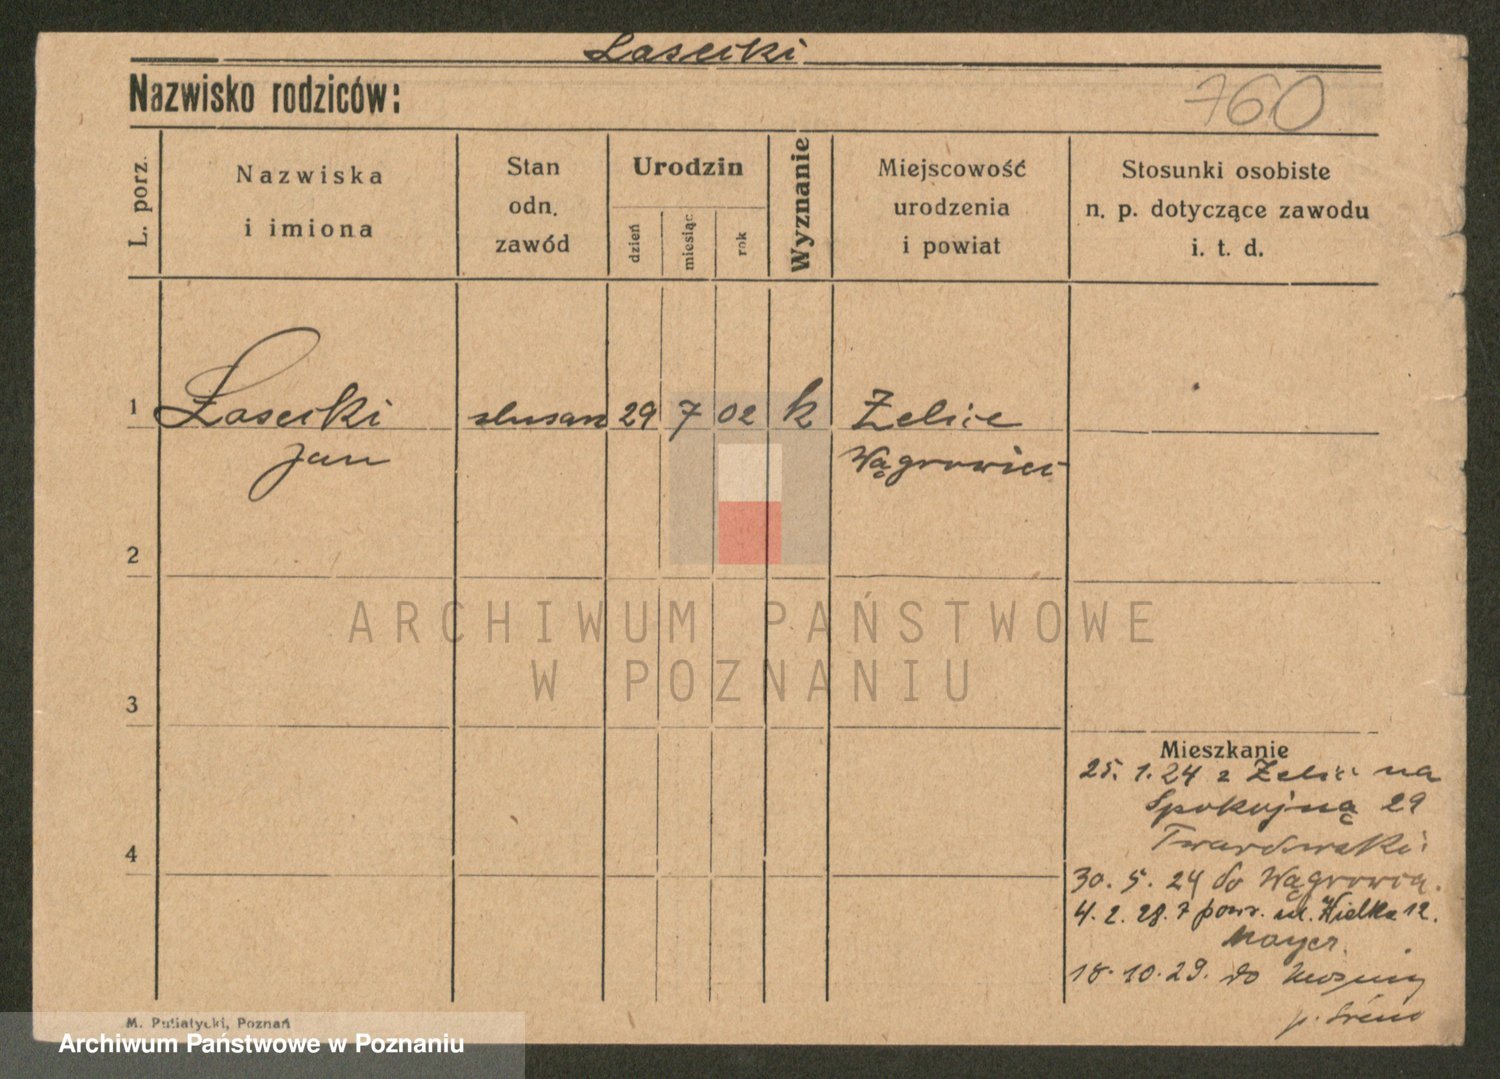 Łasecki
760
Nazwisko rodziców:
L. porz.
Nazwiska
i imiona
Stan
odn.
zawód
Urodzin
dzień
miesiąc
rok
Wyznanie
Miejscowość
urodzenia
i powiat
Stosunki osobiste
n. p. dotyczące zawodu
i. t. d.
1 Łasecki ślusarz 29 7 02 k Zelice
Jan Wągrowiec
2
ARCHIWUM PAŃSTWOWE
W POZNANIU
3
Mieszkanie
25. 1. 24 z Zelic na
Spokojną 29
Twardowski
4
30. 5. 24 do Wągrowca.
4. 2. 28. z pow. ul. Wielka 12.
Mayer.
18. 10. 29. do Mosiny
p. Śrem
M. Putiatycki, Poznań
Archiwum Państwowe w Poznaniu